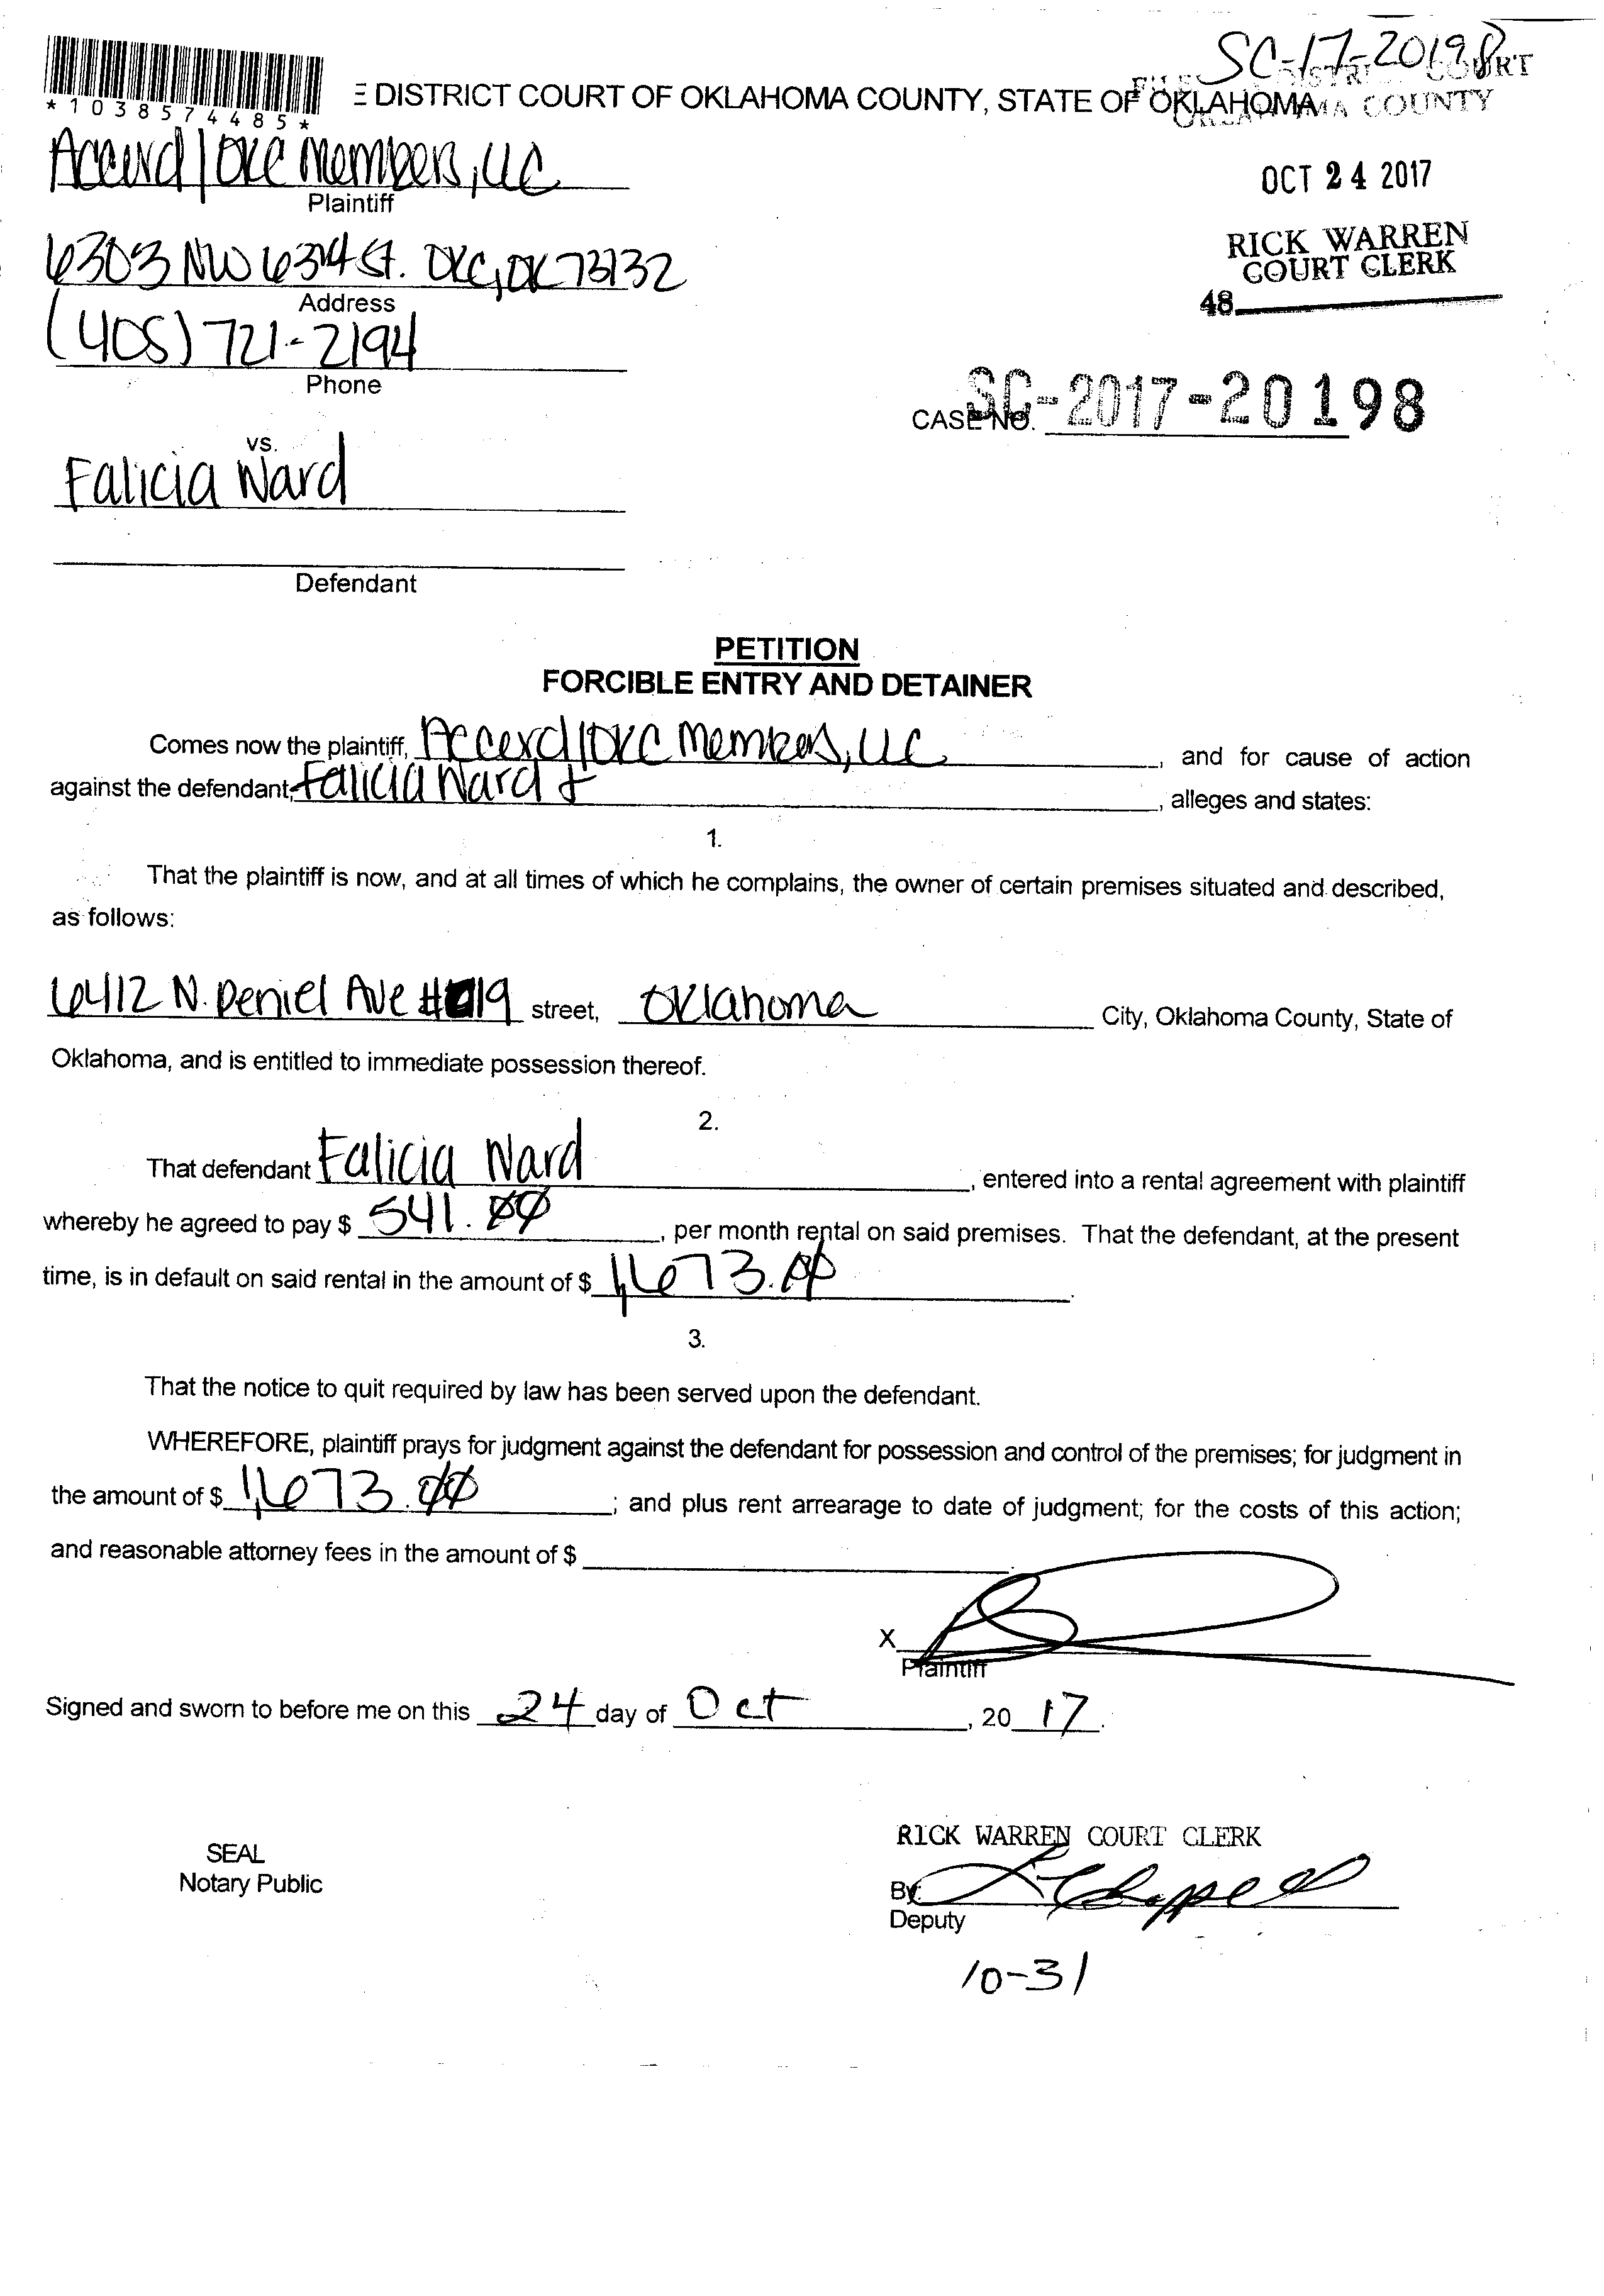 SC-17-20198
DISTRICT COURT OF OKLAHOMA COUNTY, STATE OF OKLAHOMA
COURT
COUNTY
*1038574485*
OKC Members, LLC
Plaintiff
OCT 24 2017
6303 NW 63rd St. OKC, OK 73132
Address
RICK WARREN
COURT CLERK
48
(405) 721-2194
Phone
CASE NO. SC-2017-20198
vs.
Falicia Ward
Defendant
PETITION
FORCIBLE ENTRY AND DETAINER
Comes now the plaintiff, OKC Members, LLC, and for cause of action
against the defendant, Falicia Ward +, alleges and states:
1.
That the plaintiff is now, and at all times of which he complains, the owner of certain premises situated and described,
as follows:
6412 N. Peniel Ave #19 street, Oklahoma City, Oklahoma County, State of
Oklahoma, and is entitled to immediate possession thereof.
2.
That defendant Falicia Ward, entered into a rental agreement with plaintiff
whereby he agreed to pay $ 541.00, per month rental on said premises. That the defendant, at the present
time, is in default on said rental in the amount of $ 1,673.00.
3.
That the notice to quit required by law has been served upon the defendant.
WHEREFORE, plaintiff prays for judgment against the defendant for possession and control of the premises; for judgment in
the amount of $ 1,673.00; and plus rent arrearage to date of judgment; for the costs of this action;
and reasonable attorney fees in the amount of $
X
Plaintiff
Signed and sworn to before me on this 24 day of Oct, 20 17.
SEAL
Notary Public
RICK WARREN COURT CLERK
By:
Deputy
10-31